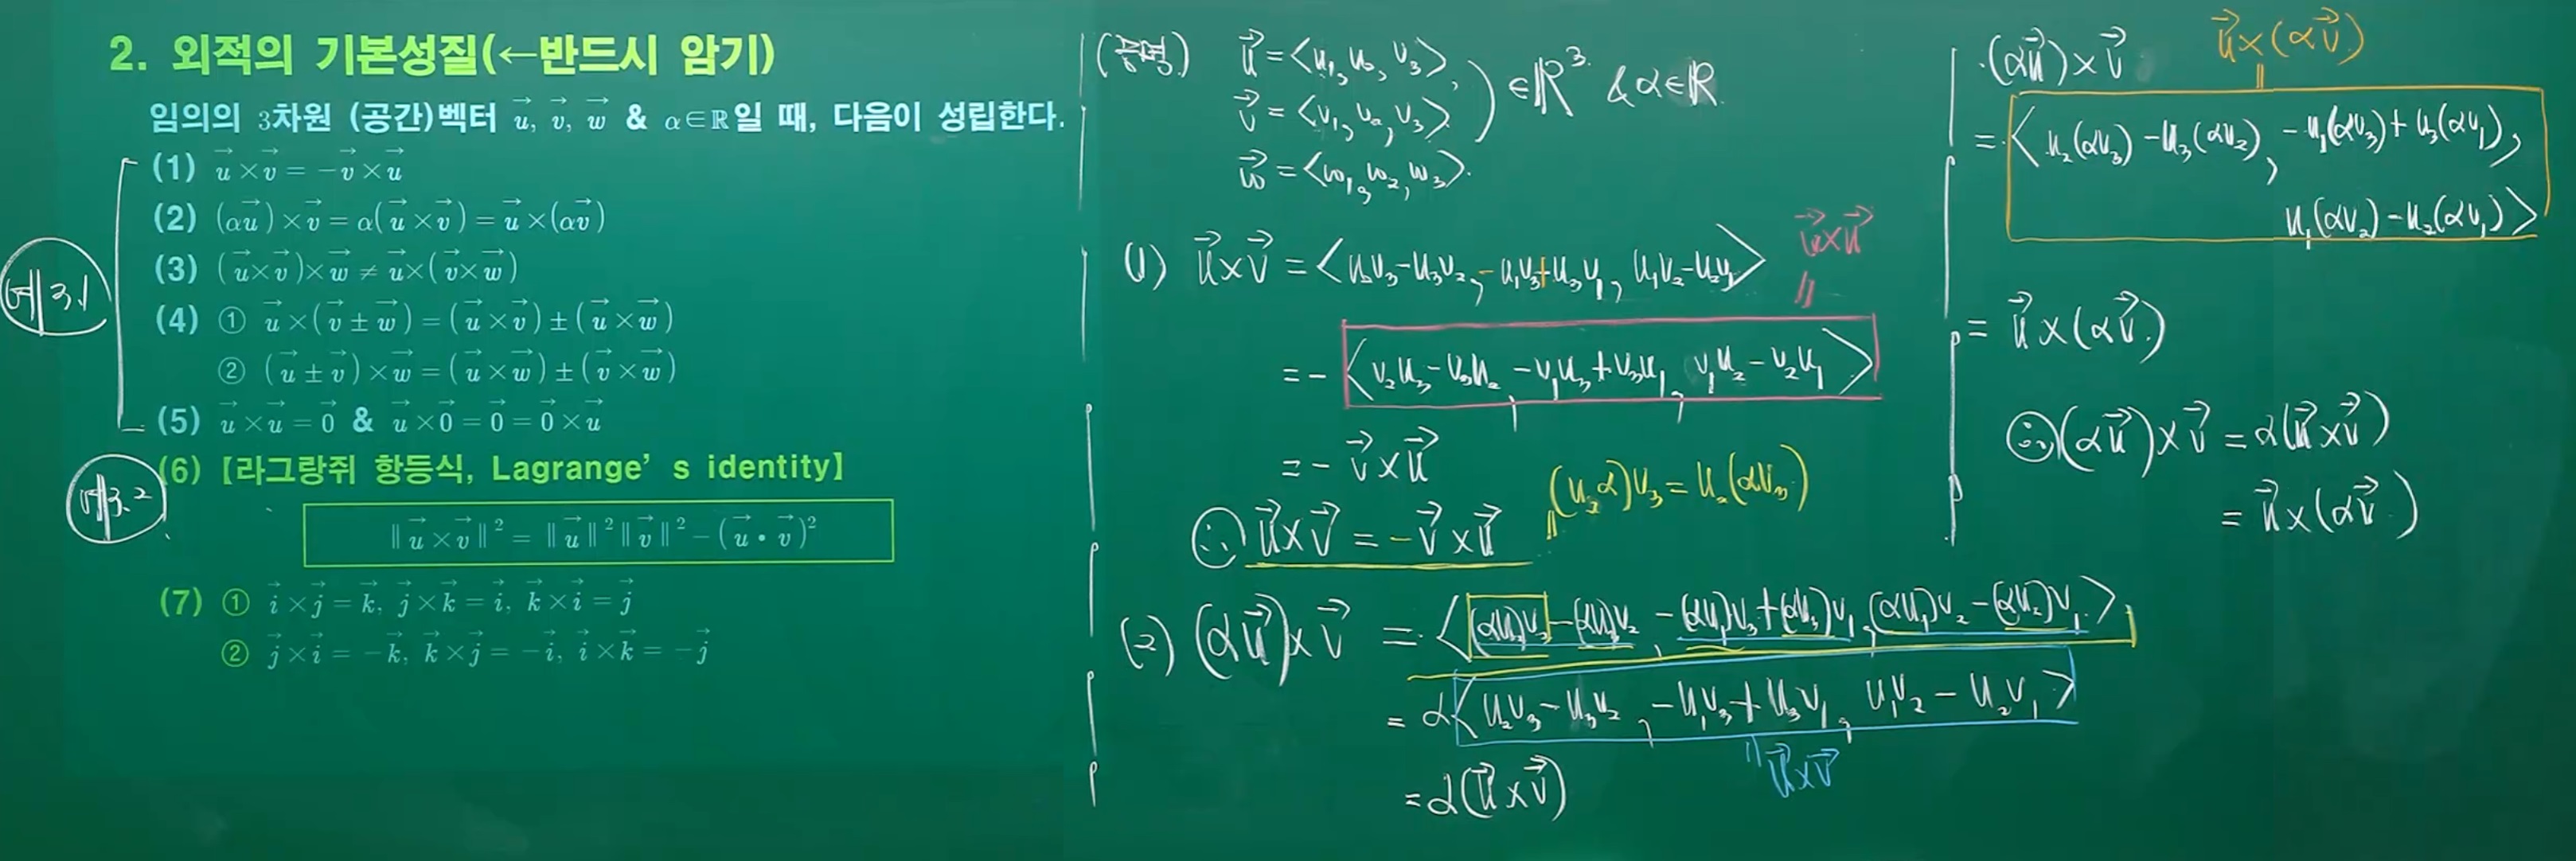 2. 외적의 기본성질(←반드시 암기)
임의의 3차원 (공간)벡터 u⃗, v⃗, w⃗ & α∈ℝ일 때, 다음이 성립한다.
(1) u⃗×v⃗ = −v⃗×u⃗
(2) (αu⃗)×v⃗ = α(u⃗×v⃗) = u⃗×(αv⃗)
(3) (u⃗×v⃗)×w⃗ ≠ u⃗×(v⃗×w⃗)
(4) ① u⃗×(v⃗±w⃗) = (u⃗×v⃗)±(u⃗×w⃗)
② (u⃗±v⃗)×w⃗ = (u⃗×w⃗)±(v⃗×w⃗)
(5) u⃗×u⃗ = 0⃗ & u⃗×0⃗ = 0⃗ = 0⃗×u⃗
예 3.1
(6)【라그랑쥐 항등식, Lagrange's identity】
예 3.2
‖u⃗×v⃗‖² = ‖u⃗‖²‖v⃗‖² − (u⃗•v⃗)²
(7) ① i⃗×j⃗ = k⃗, j⃗×k⃗ = i⃗, k⃗×i⃗ = j⃗
② j⃗×i⃗ = −k⃗, k⃗×j⃗ = −i⃗, i⃗×k⃗ = −j⃗
(증명) u⃗ = <u₁, u₂, v₃>,
v⃗ = <v₁, v₂, v₃>, ) ∈ℝ³ & α∈ℝ.
w⃗ = <w₁, w₂, w₃>.
(1) u⃗×v⃗ = <u₂v₃−u₃v₂, −u₁v₃+u₃v₁, u₁v₂−u₂v₁>
v⃗×u⃗
= −<v₂u₃−v₃u₂, −v₁u₃+v₃u₁, v₁u₂−v₂u₁>
= −v⃗×u⃗
∴ u⃗×v⃗ = −v⃗×u⃗
(u₂α)v₃ = u₂(αv₃)
(2) (αu⃗)×v⃗ = <(αu₂)v₃−(αu₃)v₂, −(αu₁)v₃+(αu₃)v₁, (αu₁)v₂−(αu₂)v₁>
= α<u₂v₃−u₃v₂, −u₁v₃+u₃v₁, u₁v₂−u₂v₁>
u⃗×v⃗
= α(u⃗×v⃗)
u⃗×(αv⃗)
·(αu⃗)×v⃗
= <u₂(αv₃)−u₃(αv₂), −u₁(αv₃)+u₃(αv₁),
u₁(αv₂)−u₂(αv₁)>
= u⃗×(αv⃗)
∴ (αu⃗)×v⃗ = α(u⃗×v⃗)
= u⃗×(αv⃗)